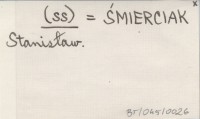 x
(SS) = ŚMIERCIAK
Stanisław.
BT/065/0026